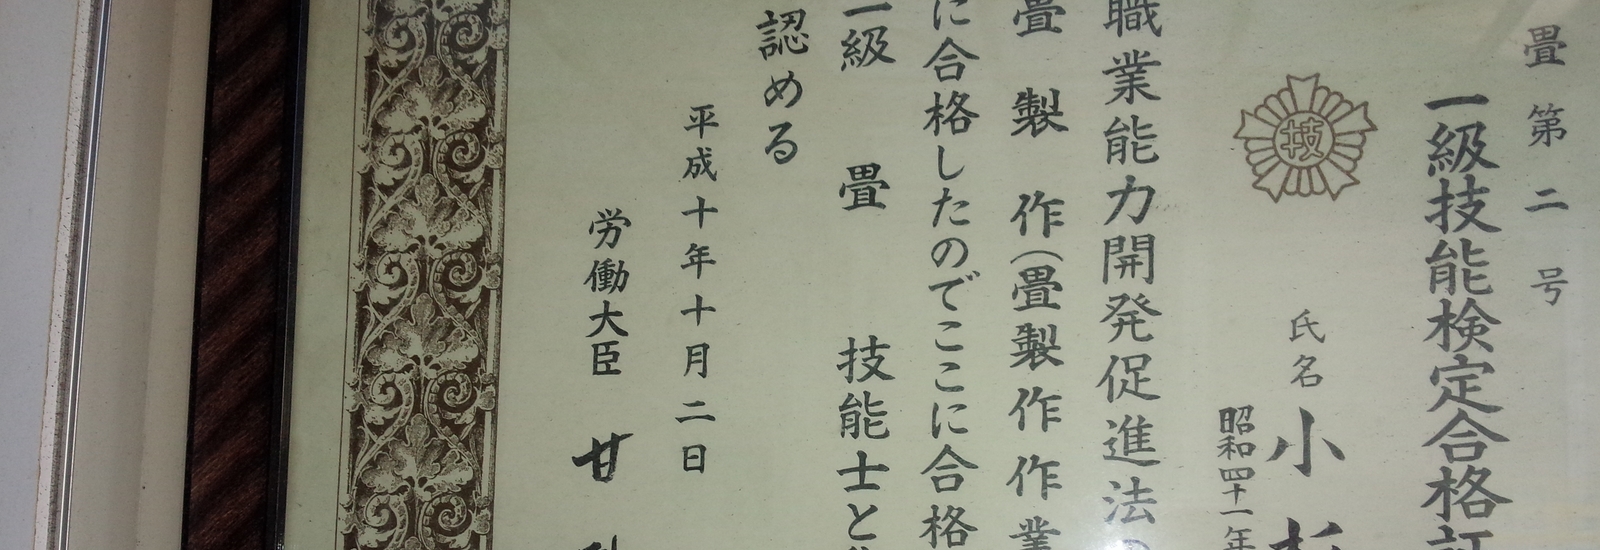 畳第二号
一級技能検定合格
技
氏名 小
昭和四十一年
職業能力開発促進法
畳製作(畳製作作業
に合格したのでここに合格
一級 畳 技能士と
認める
平成十年十月二日
労働大臣 甘